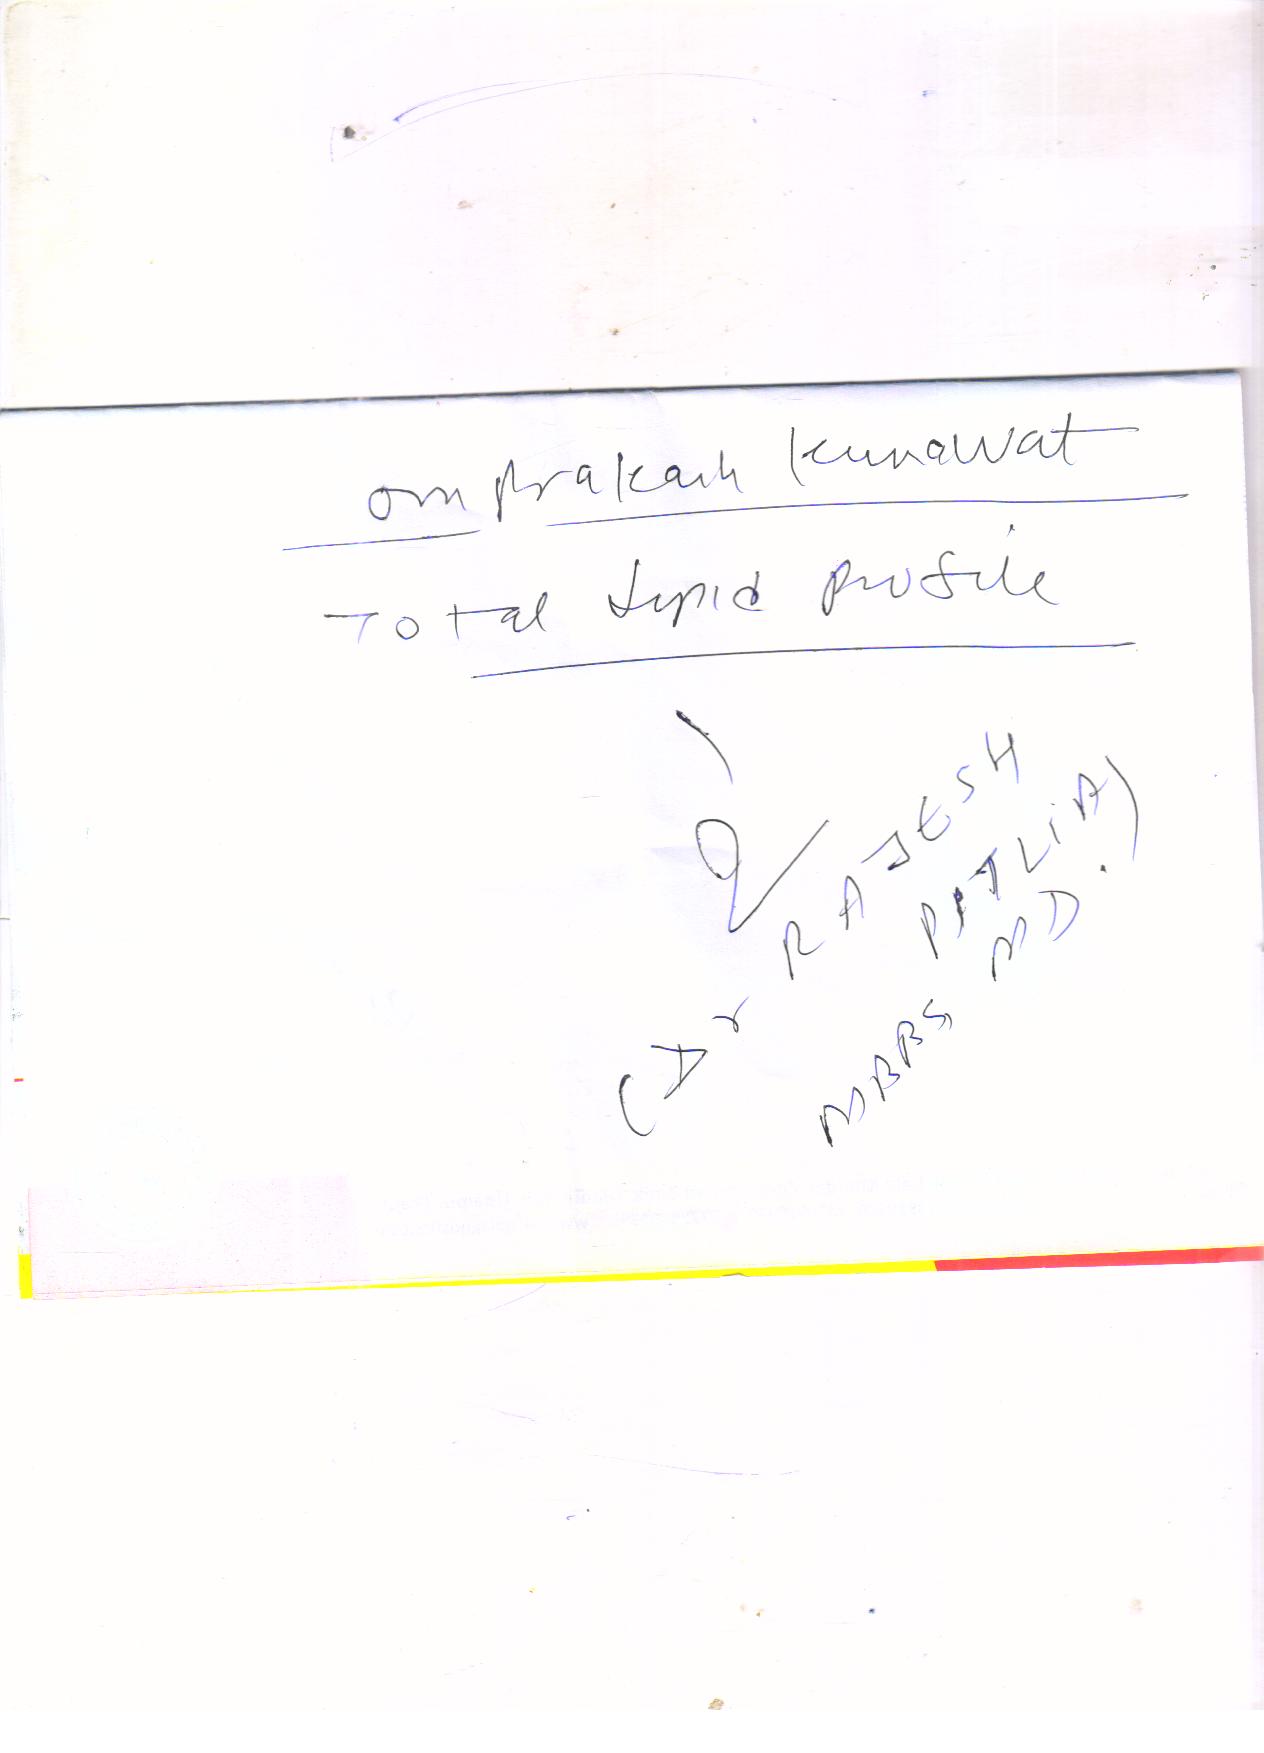 Om Prakash Kunawat
Total Lipid Profile
(Dr RAJESH
PATLIA)
MBBS MD.